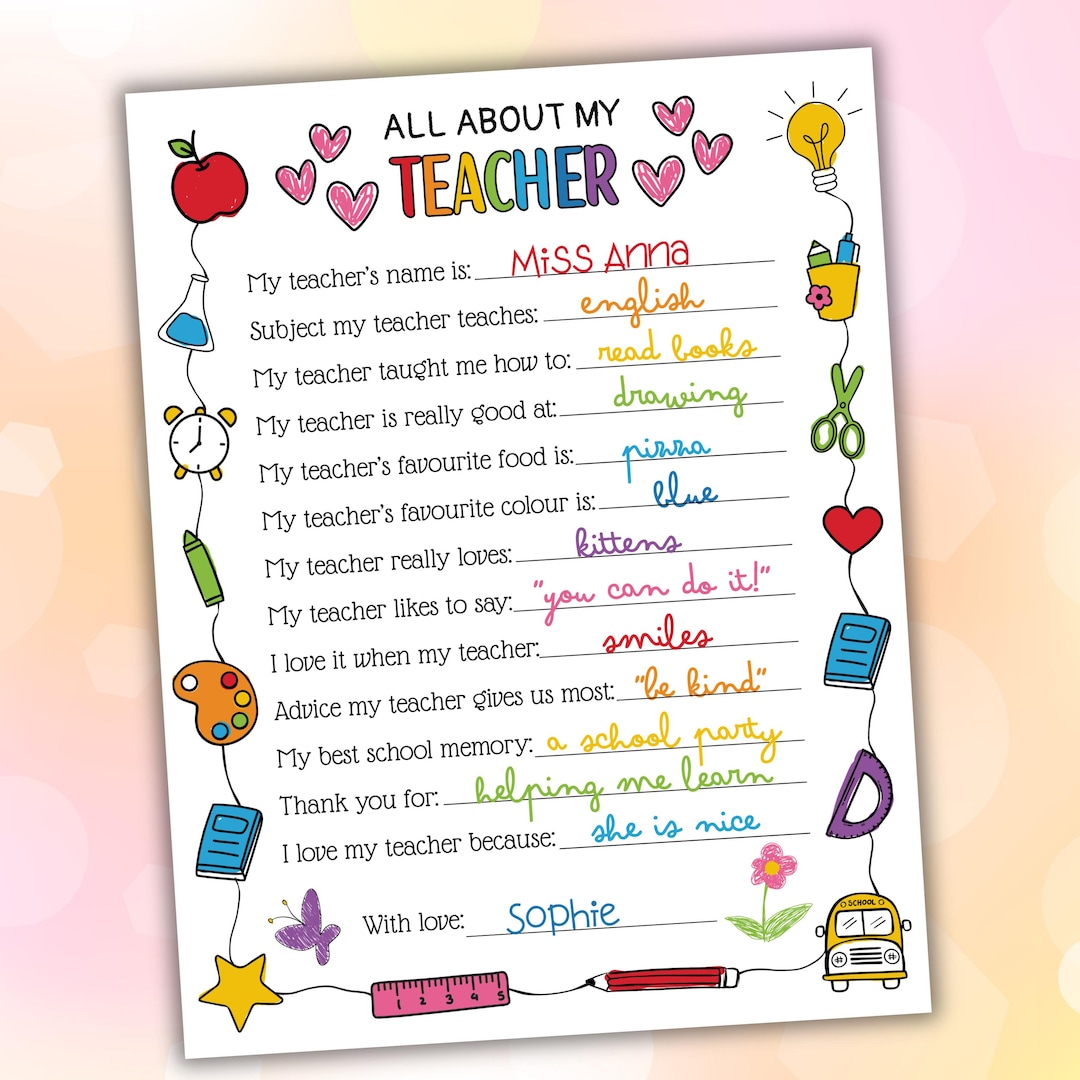 ALL ABOUT MY
TEACHER
My teacher's name is: Miss Anna
Subject my teacher teaches: english
My teacher taught me how to: read books
My teacher is really good at: drawing
My teacher's favourite food is: pizza
My teacher's favourite colour is: blue
My teacher really loves: kittens
My teacher likes to say: "you can do it!"
I love it when my teacher: smiles
Advice my teacher gives us most: "be kind"
My best school memory: a school party
Thank you for: helping me learn
I love my teacher because: she is nice
With love: Sophie
SCHOOL
1 2 3 4 5